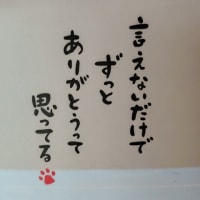 言えないだけで
ずっと
ありがとうって
思ってる